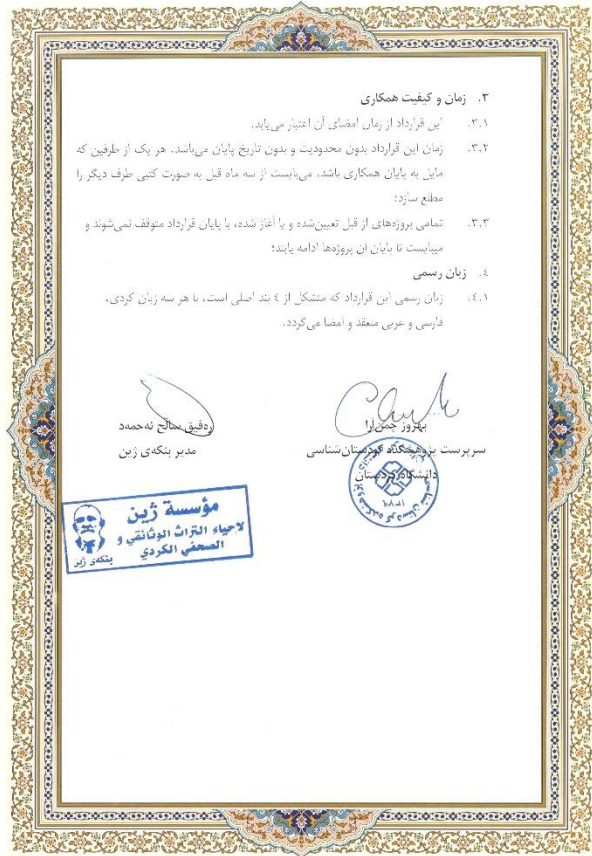 ۳. زمان و کیفیت همکاری
۳.۱. این قرارداد از زمان امضای آن اعتبار می‌یابد.
۳.۲. زمان این قرارداد بدون محدودیت و بدون تاریخ پایان می‌باشد. هر یک از طرفین که
مایل به پایان همکاری باشد، می‌بایست از سه ماه قبل به صورت کتبی طرف دیگر را
مطلع سازد؛
۳.۳. تمامی پروژه‌های از قبل تعیین‌شده و یا آغاز شده، با پایان قرارداد متوقف نمی‌شوند و
میبایست تا پایان آن پروژه‌ها ادامه یابند؛
٤. زبان رسمی
٤.۱. زبان رسمی این قرارداد که متشکل از ٤ بند اصلی است، با هر سه زبان کردی،
فارسی و عربی منعقد و امضا می‌گردد.
بهروز چمن‌آرا
سرپرست پژوهشکده کردستان‌شناسی
دانشگاه کردستان
۱۳۷۹
ره‌فیق ساڵح ئه‌حمه‌د
مدیر بنکه‌ی ژین
مؤسسة ژین
لاحیاء التراث الوثائقي و
الصحفي الكردي
بنکه‌ی ژین